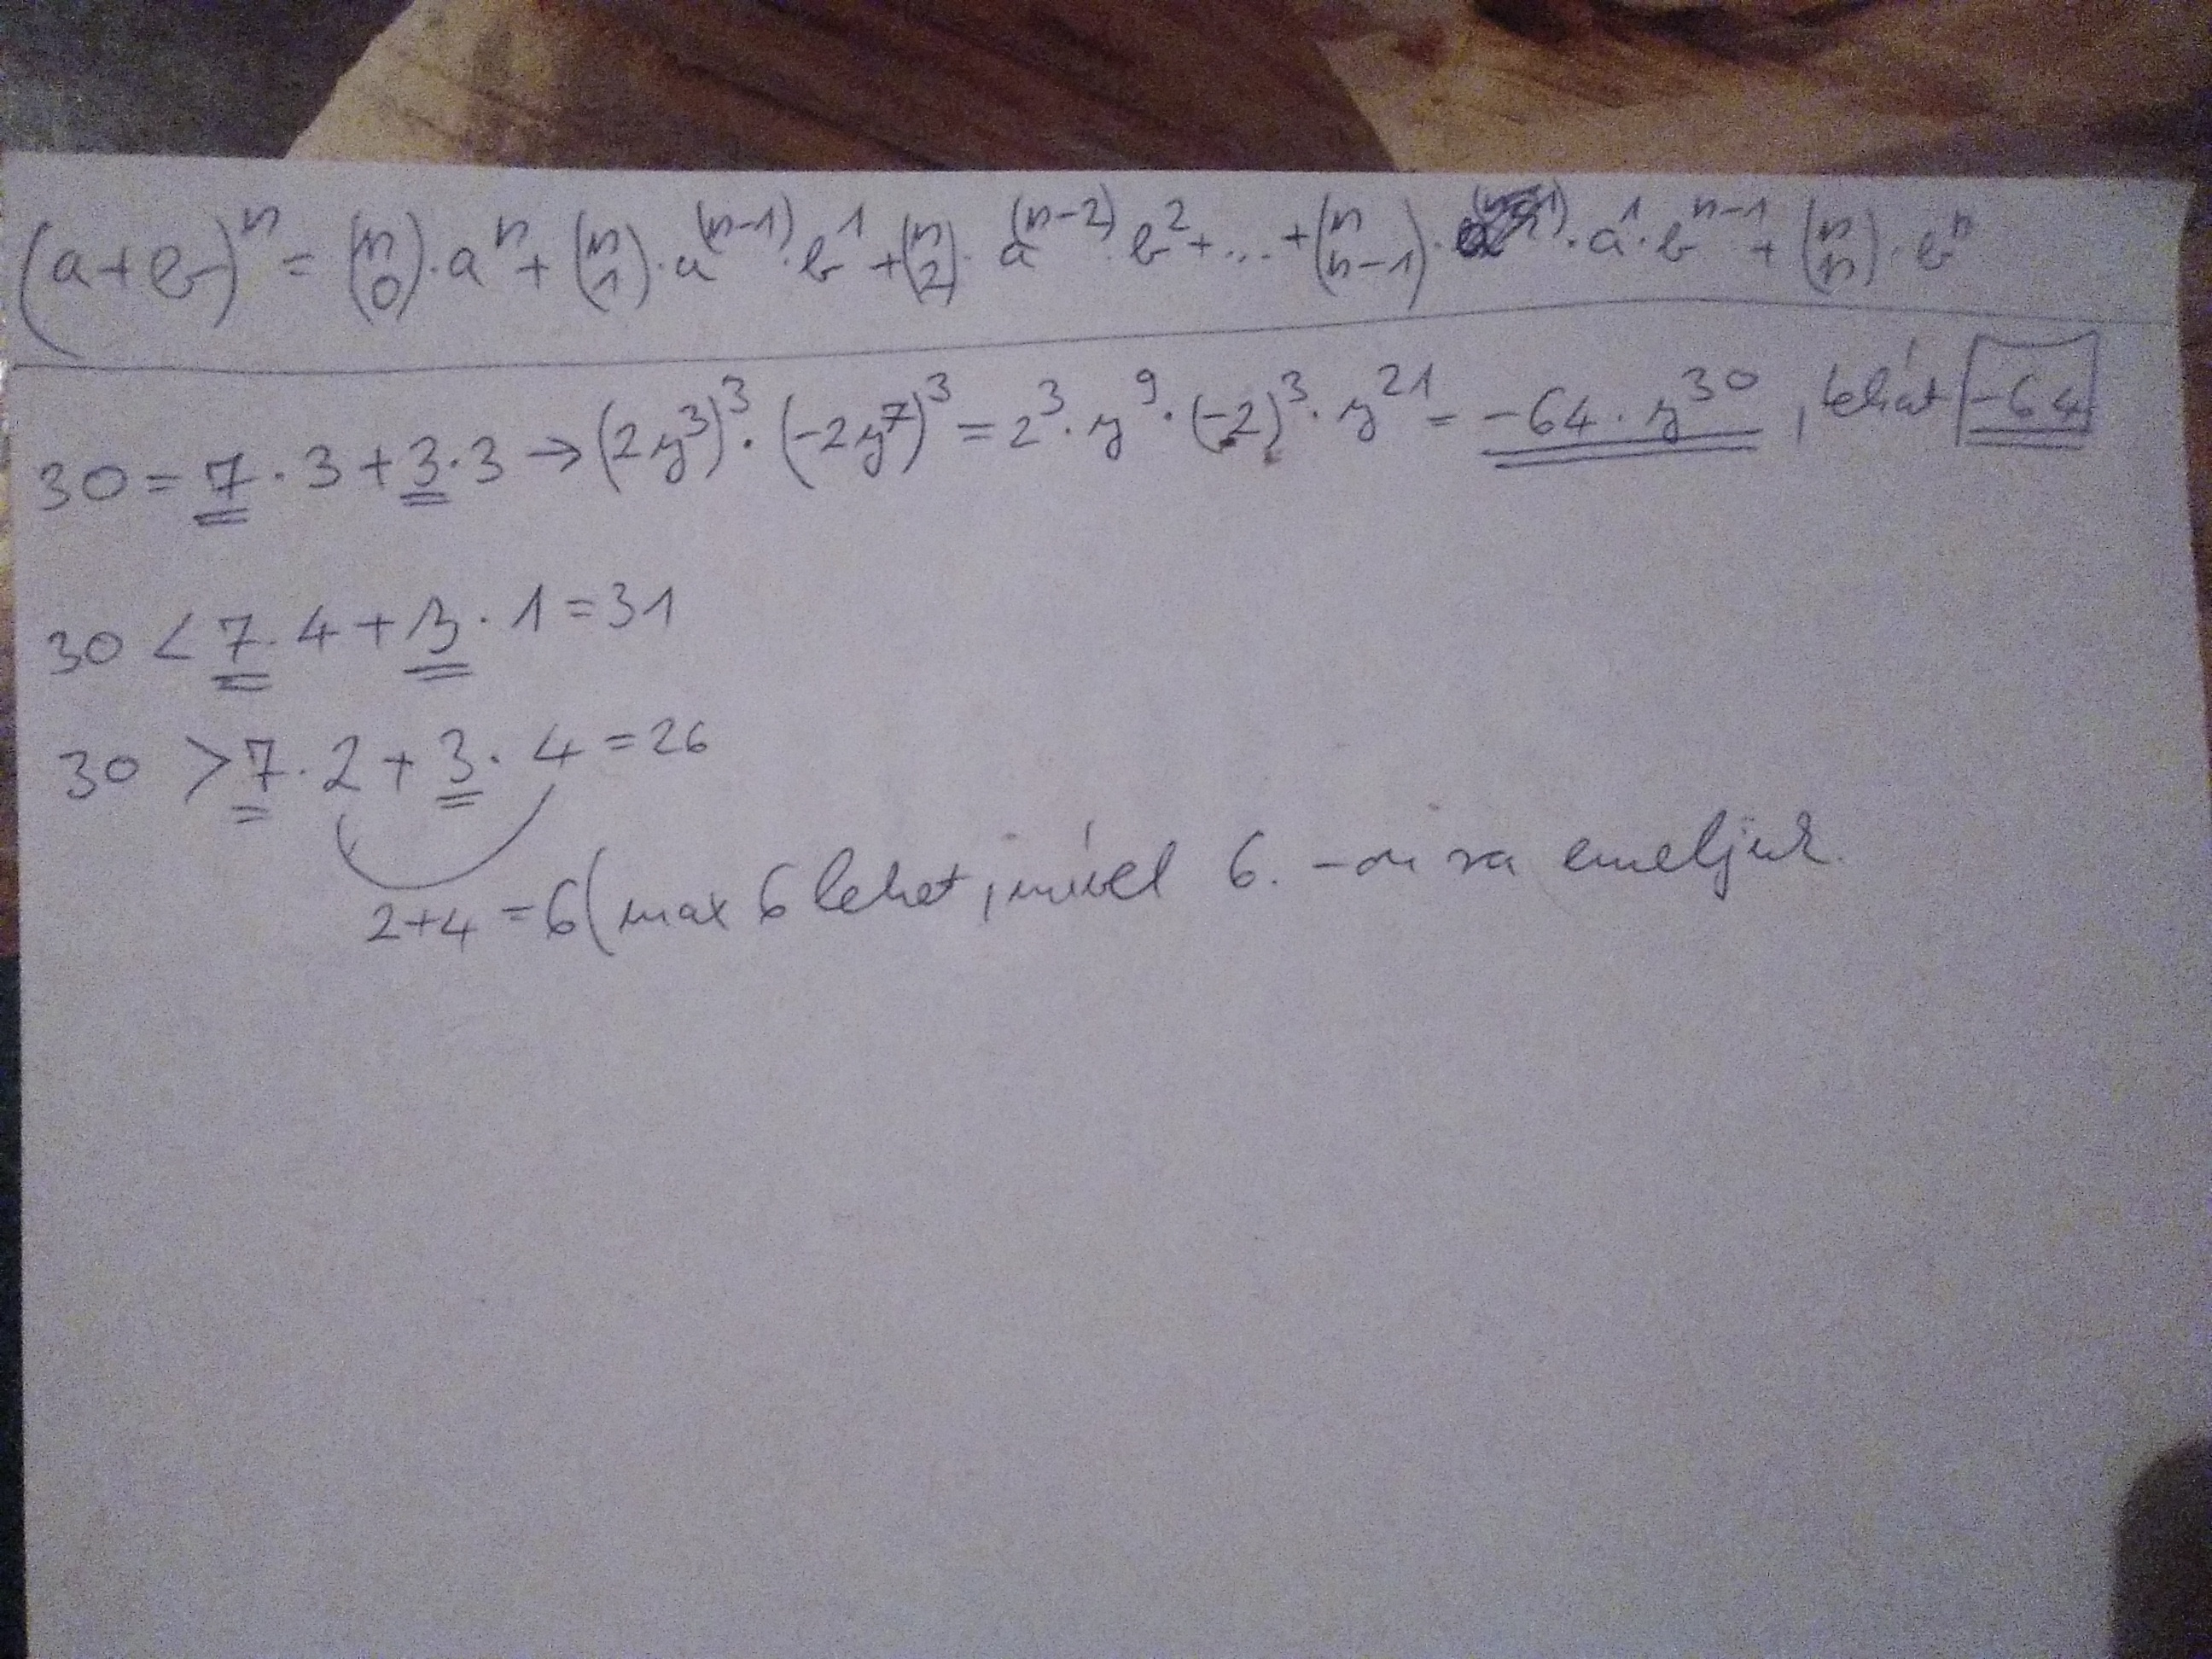 (a+b)^n = (n 0)·a^n + (n 1)·a^(n-1)·b^1 + (n 2)·a^(n-2)·b^2 + ... + (n n-1)·a^1·b^n-1 + (n n)·b^n
30 = 7·3 + 3·3 → (2y^3)^3·(-2y^7)^3 = 2^3·y^9·(-2)^3·y^21 = -64·y^30, tehát -64
30 < 7·4 + 3·1 = 31
30 > 7·2 + 3·4 = 26
2+4 = 6 (max 6 lehet, mivel 6.-ra emeljük.